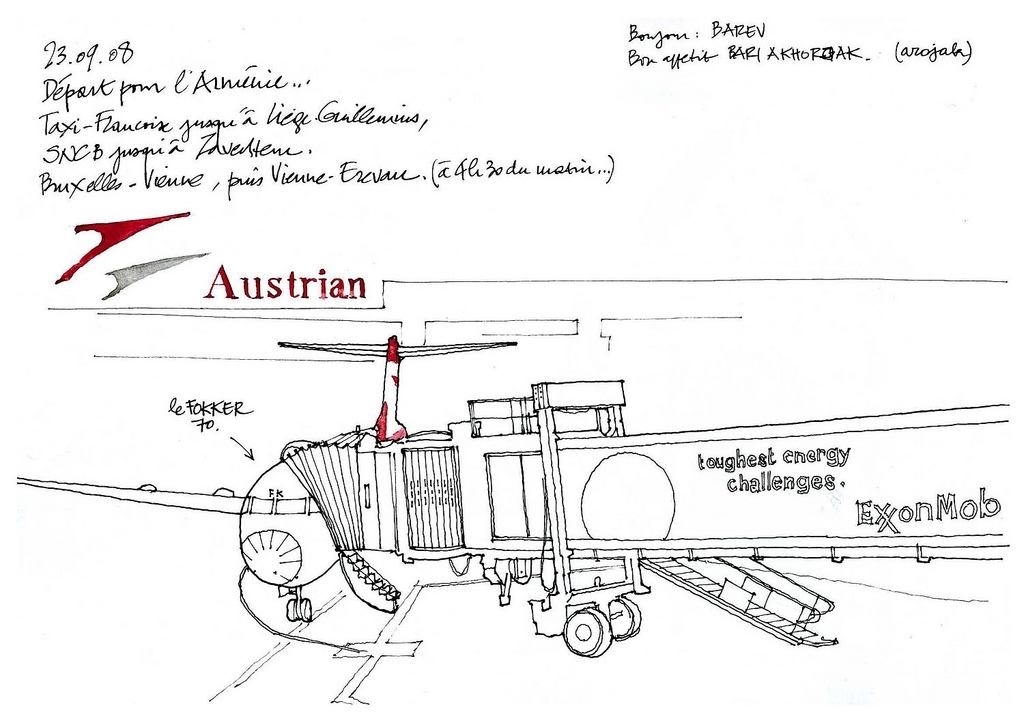 23.09.08
Départ pour l'Arménie...
Taxi-Françoise jusqu'à Liège-Guillemins,
SNCB jusqu'à Zaventem.
Bruxelles - Vienne, puis Vienne-Erevan. (à 4h30 du matin...)
Bonjour: BAREV
Bon appetit BARI AKHORJAK. (arojak)
Austrian
le FOKKER
70.
F.K
toughest energy
challenges.
ExxonMob